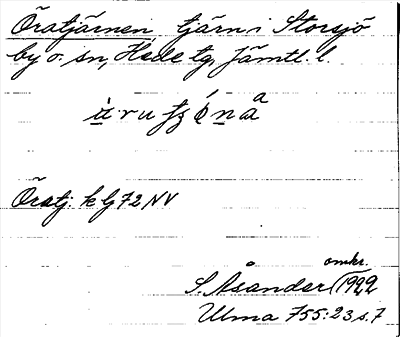 Öratjärnen tjärn i Storsjö
by o. sn, Hede tg, Jämtl. l.
Öratj: k Gj 72 NV
omkr.
S. Åsander (1922
Ulma 755:23 s. 7